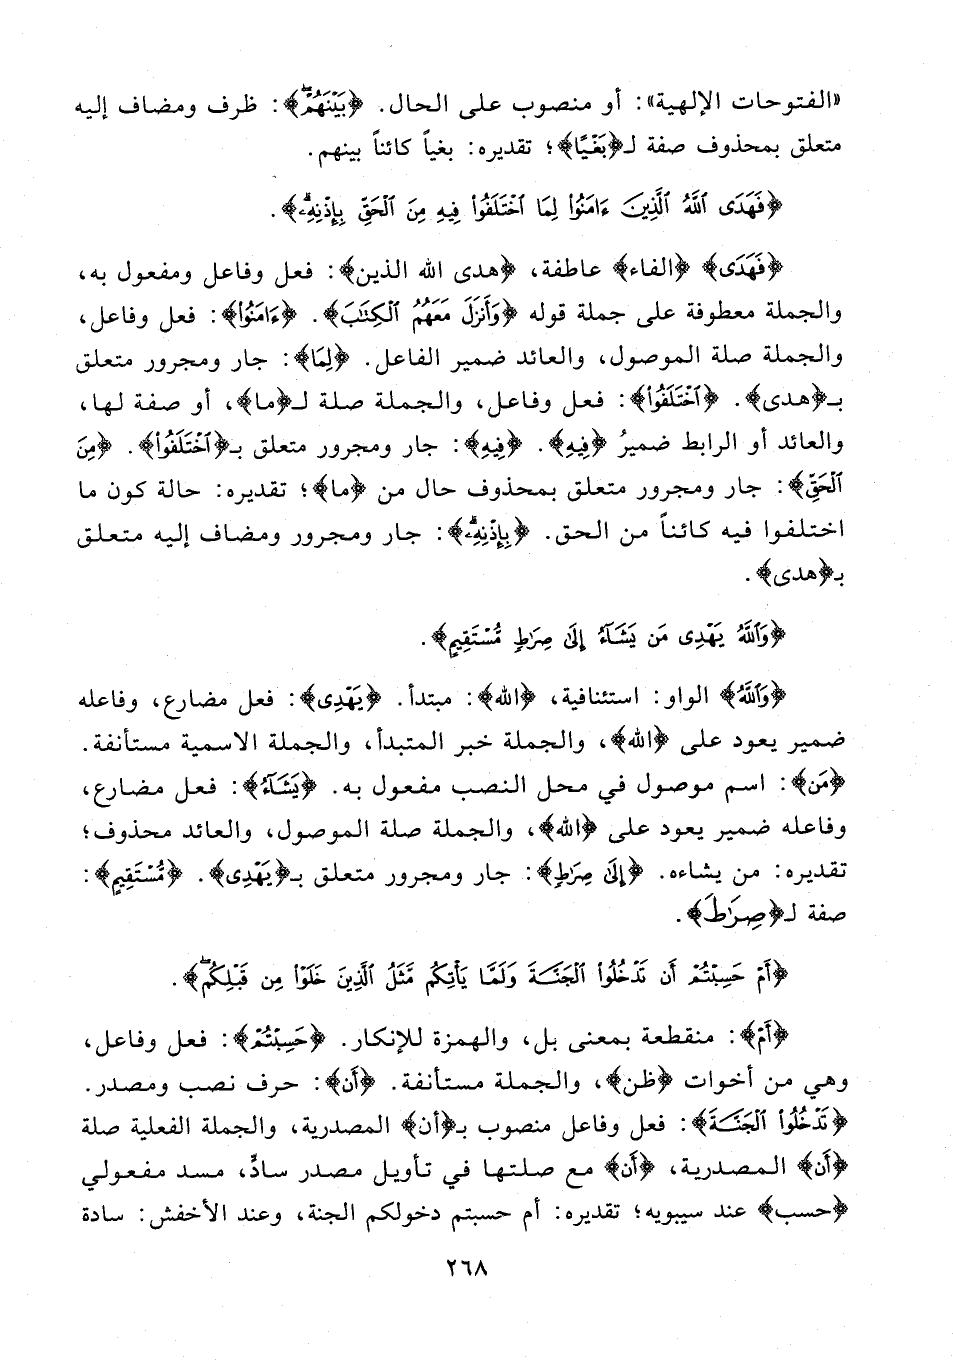 «الفتوحات الإلهية»: أو منصوب على الحال. ﴿بَيْنَهُمْۖ﴾: ظرف ومضاف إليه
متعلق بمحذوف صفة لـ﴿بَغْيًا﴾؛ تقديره: بغياً كائناً بينهم.
﴿فَهَدَى ٱللَّهُ ٱلَّذِينَ ءَامَنُوا۟ لِمَا ٱخْتَلَفُوا۟ فِيهِ مِنَ ٱلْحَقِّ بِإِذْنِهِۦۗ﴾.
﴿فَهَدَى﴾ ﴿الفاء﴾ عاطفة، ﴿هدى الله الذين﴾: فعل وفاعل ومفعول به،
والجملة معطوفة على جملة قوله ﴿وَأَنزَلَ مَعَهُمُ ٱلْكِتَٰبَ﴾. ﴿ءَامَنُوا۟﴾: فعل وفاعل،
والجملة صلة الموصول، والعائد ضمير الفاعل. ﴿لِمَا﴾: جار ومجرور متعلق
بـ﴿هدى﴾. ﴿ٱخْتَلَفُوا۟﴾: فعل وفاعل، والجملة صلة لـ﴿ما﴾، أو صفة لها،
والعائد أو الرابط ضميرُ ﴿فِيهِ﴾. ﴿فِيهِ﴾: جار ومجرور متعلق بـ﴿ٱخْتَلَفُوا۟﴾. ﴿مِنَ
ٱلْحَقِّ﴾: جار ومجرور متعلق بمحذوف حال من ﴿ما﴾؛ تقديره: حالة كون ما
اختلفوا فيه كائناً من الحق. ﴿بِإِذْنِهِۦۗ﴾: جار ومجرور ومضاف إليه متعلق
بـ﴿هدى﴾.
﴿وَٱللَّهُ يَهْدِى مَن يَشَآءُ إِلَىٰ صِرَٰطٍ مُّسْتَقِيمٍ﴾.
﴿وَٱللَّهُ﴾ الواو: استئنافية، ﴿الله﴾: مبتدأ. ﴿يَهْدِى﴾: فعل مضارع، وفاعله
ضمير يعود على ﴿الله﴾، والجملة خبر المتبدأ، والجملة الاسمية مستأنفة.
﴿مَن﴾: اسم موصول في محل النصب مفعول به. ﴿يَشَآءُ﴾: فعل مضارع،
وفاعله ضمير يعود على ﴿الله﴾، والجملة صلة الموصول، والعائد محذوف؛
تقديره: من يشاءه. ﴿إِلَىٰ صِرَٰطٍ﴾: جار ومجرور متعلق بـ﴿يَهْدِى﴾. ﴿مُّسْتَقِيمٍ﴾:
صفة لـ﴿صِرَٰطَ﴾.
﴿أَمْ حَسِبْتُمْ أَن تَدْخُلُوا۟ ٱلْجَنَّةَ وَلَمَّا يَأْتِكُم مَّثَلُ ٱلَّذِينَ خَلَوْا۟ مِن قَبْلِكُمۖ﴾.
﴿أَمْ﴾: منقطعة بمعنى بل، والهمزة للإنكار. ﴿حَسِبْتُمْ﴾: فعل وفاعل،
وهي من أخوات ﴿ظن﴾، والجملة مستأنفة. ﴿أَن﴾: حرف نصب ومصدر.
﴿تَدْخُلُوا۟ ٱلْجَنَّةَ﴾: فعل وفاعل منصوب بـ﴿أن﴾ المصدرية، والجملة الفعلية صلة
﴿أَن﴾ المصدرية، ﴿أَن﴾ مع صلتها في تأويل مصدر سادٍّ، مسد مفعولي
﴿حسب﴾ عند سيبويه؛ تقديره: أم حسبتم دخولكم الجنة، وعند الأخفش: سادة
٢٦٨